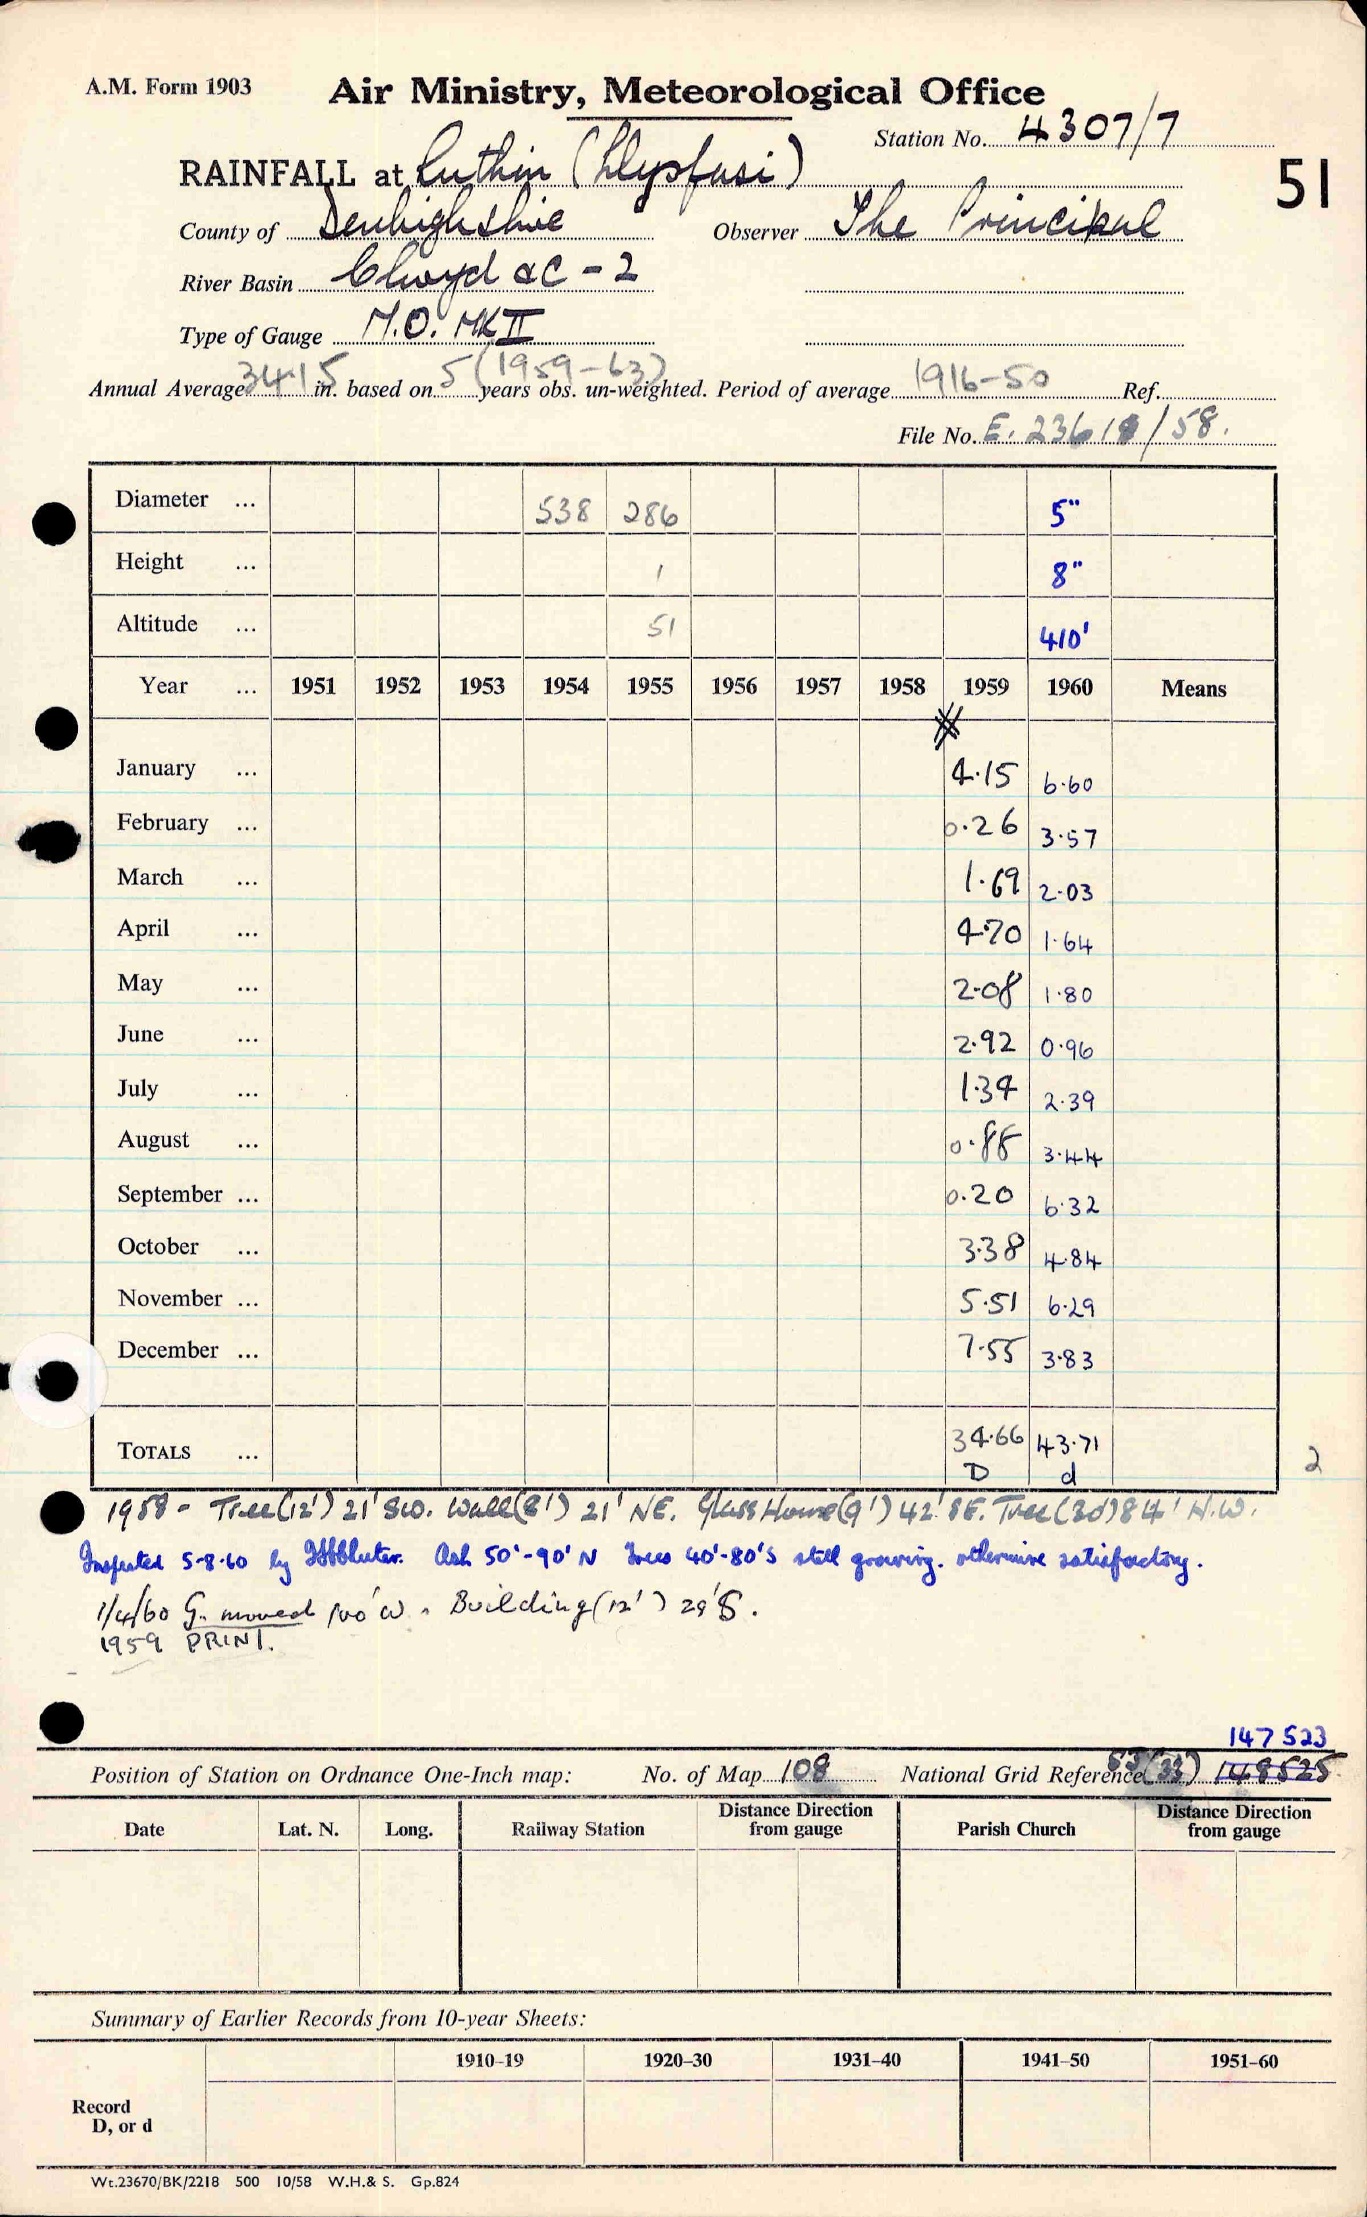 A.M. Form 1903
Air Ministry, Meteorological Office
Station No. 4307/7
RAINFALL at Ruthin (Llysfasi)
51
County of Denbighshire Observer The Principal
River Basin Clwyd &C - 2
Type of Gauge M.O. MK II
Annual Average 34.15 in. based on 5 (1959-63) years obs. un-weighted. Period of average 1916-50 Ref.
File No. E. 23618/58.
Diameter ... 538 286 5"
Height ... 1 8"
Altitude ... 51 410'
Year ... 1951 1952 1953 1954 1955 1956 1957 1958 1959 1960 Means
January ... 4.15 6.60
February ... 0.26 3.57
March ... 1.69 2.03
April ... 4.70 1.64
May ... 2.08 1.80
June ... 2.92 0.96
July ... 1.34 2.39
August ... 0.88 3.44
September ... 0.20 6.32
October ... 3.38 4.84
November ... 5.51 6.29
December ... 7.55 3.83
TOTALS ... 34.66 43.71
D d
2
1958 - Tree (12') 21' SW. Wall (8') 21' NE. Glass House (9') 42' SE. Tree (30) 84' N.W.
Inspected 5-8-60 by Ash 50'-90' N Trees 40'-80' S still growing. otherwise satisfactory.
1/4/60 G. moved 100' W. Building (12') 29' S.
1959 PRINT.
147 523
Position of Station on Ordnance One-Inch map: No. of Map 108 National Grid Reference (33) 148525
Date Lat. N. Long. Railway Station Distance Direction from gauge Parish Church Distance Direction from gauge
Summary of Earlier Records from 10-year Sheets:
1910-19 1920-30 1931-40 1941-50 1951-60
Record
D, or d
Wt.23670/BK/2218 500 10/58 W.H.& S. Gp.824